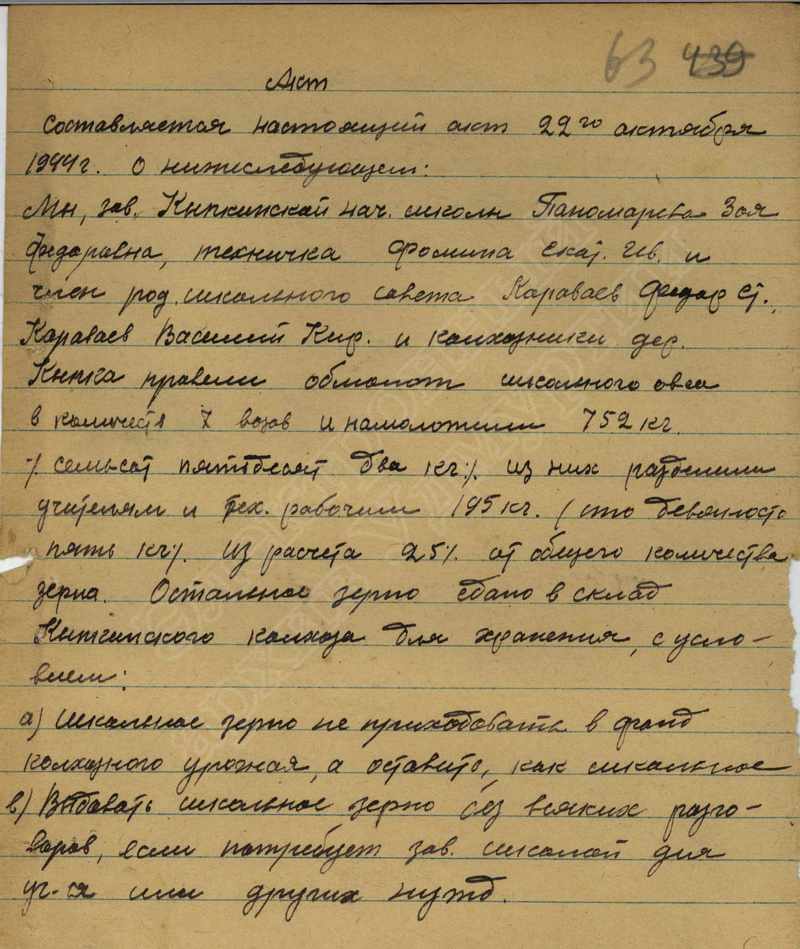 63 439
Акт
Составляется настоящий акт 22го октября
1944г. о нижеследующем:
Мы, зав. Кыпкинской нач. школы Паномарева Зоя
Федаравна, техничка Фомина Екат. Ив. и
член род. школьного совета Караваев Федор Ст.,
Караваев Василий Кир. и колхозники дер.
Кыпка правели обмолот школьного овса
в количеств 7 возов и намолотили 752 кг.
-/. семьсот пятьдесят два кг./. из них разделили
учителям и тех. рабочим 195 кг. (сто девяносто
пять кг/. из расчета 25% от общего количества
зерна. Остальное зерно сдано в склад
колхоза для хранения, с усло-
вием:
а) Школьное зерно не приходовать в фонд
колхозного урожая, а оставить, как школьное
в) Выдовать школьное зерно без всяких разго-
воров, если потребует зав. школой для
уч-ся или других нужд.